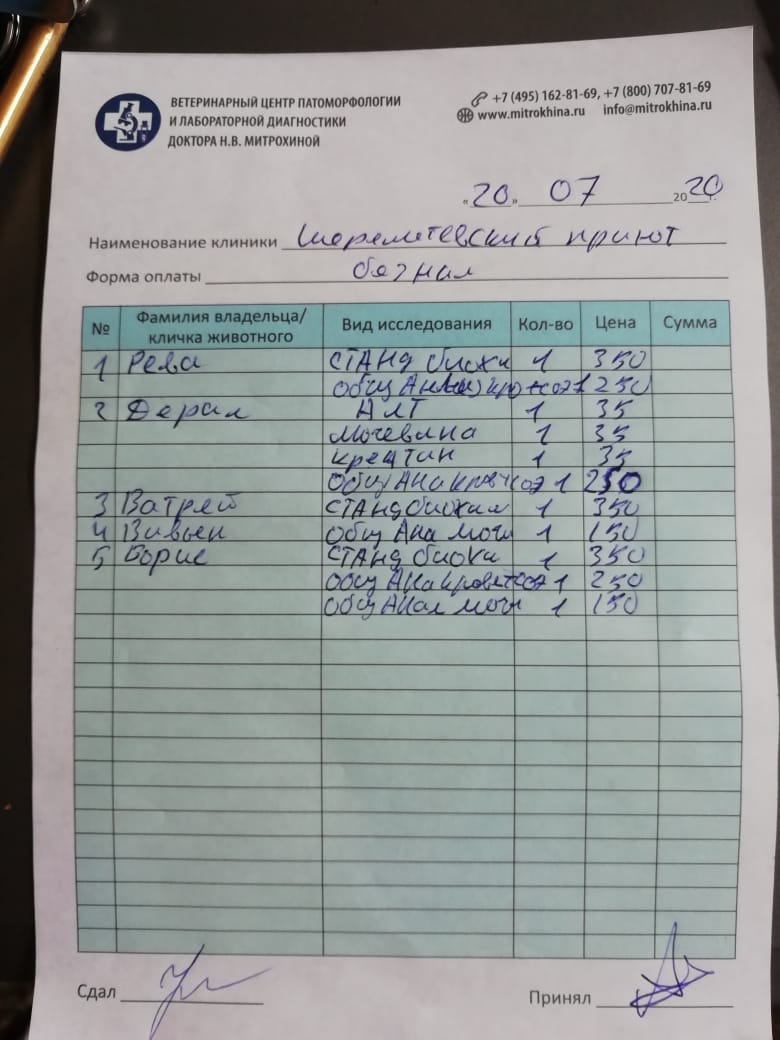 ВЕТЕРИНАРНЫЙ ЦЕНТР ПАТОМОРФОЛОГИИ
И ЛАБОРАТОРНОЙ ДИАГНОСТИКИ
ДОКТОРА Н.В. МИТРОХИНОЙ
+7 (495) 162-81-69, +7 (800) 707-81-69
www.mitrokhina.ru info@mitrokhina.ru
«20» 07 2020 г.
Наименование клиники Шереметевский приют
Форма оплаты безнал
№ Фамилия владельца/ кличка животного Вид исследования Кол-во Цена Сумма
1 Рева СТАНД биохи 1 350
общ Анализ кро+соэ 1 250
2 Дерал АЛТ 1 35
Мочевина 1 35
креатин 1 35
общ Ана кров+соэ 1 250
3 Ватрей СТАНД биохим 1 350
4 Вивьен общ Ана мочи 1 150
5 Борис СТАНД биохи 1 350
общ Ана крови+соэ 1 250
общ Анал мочи 1 150
Сдал
Принял